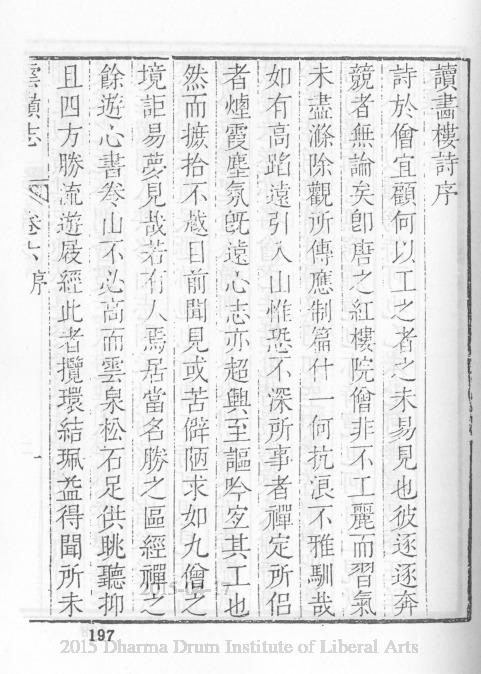 讀畫樓詩序
詩於僧宜顧何以工之者之未易見也彼逐逐奔
競者無論矣卽唐之紅樓院僧非不工麗而習氣
未盡滌除觀所傳應制篇什一何抗浪不雅馴哉
如有高蹈遠引入山惟恐不深所事者禪定所侶
者煙霞塵氛旣遠心志亦超興至謳吟宜其工也
然而摭拾不越目前聞見或苦僻陋求如九僧之
境詎易夢見哉若有人焉居當名勝之區經禪之
餘遊心書卷山不必高而雲泉松石足供眺聽抑
且四方勝流遊屐經此者攬環結珮益得聞所未
雲嶺志 卷六 序 一
197
2015 Dharma Drum Institute of Liberal Arts